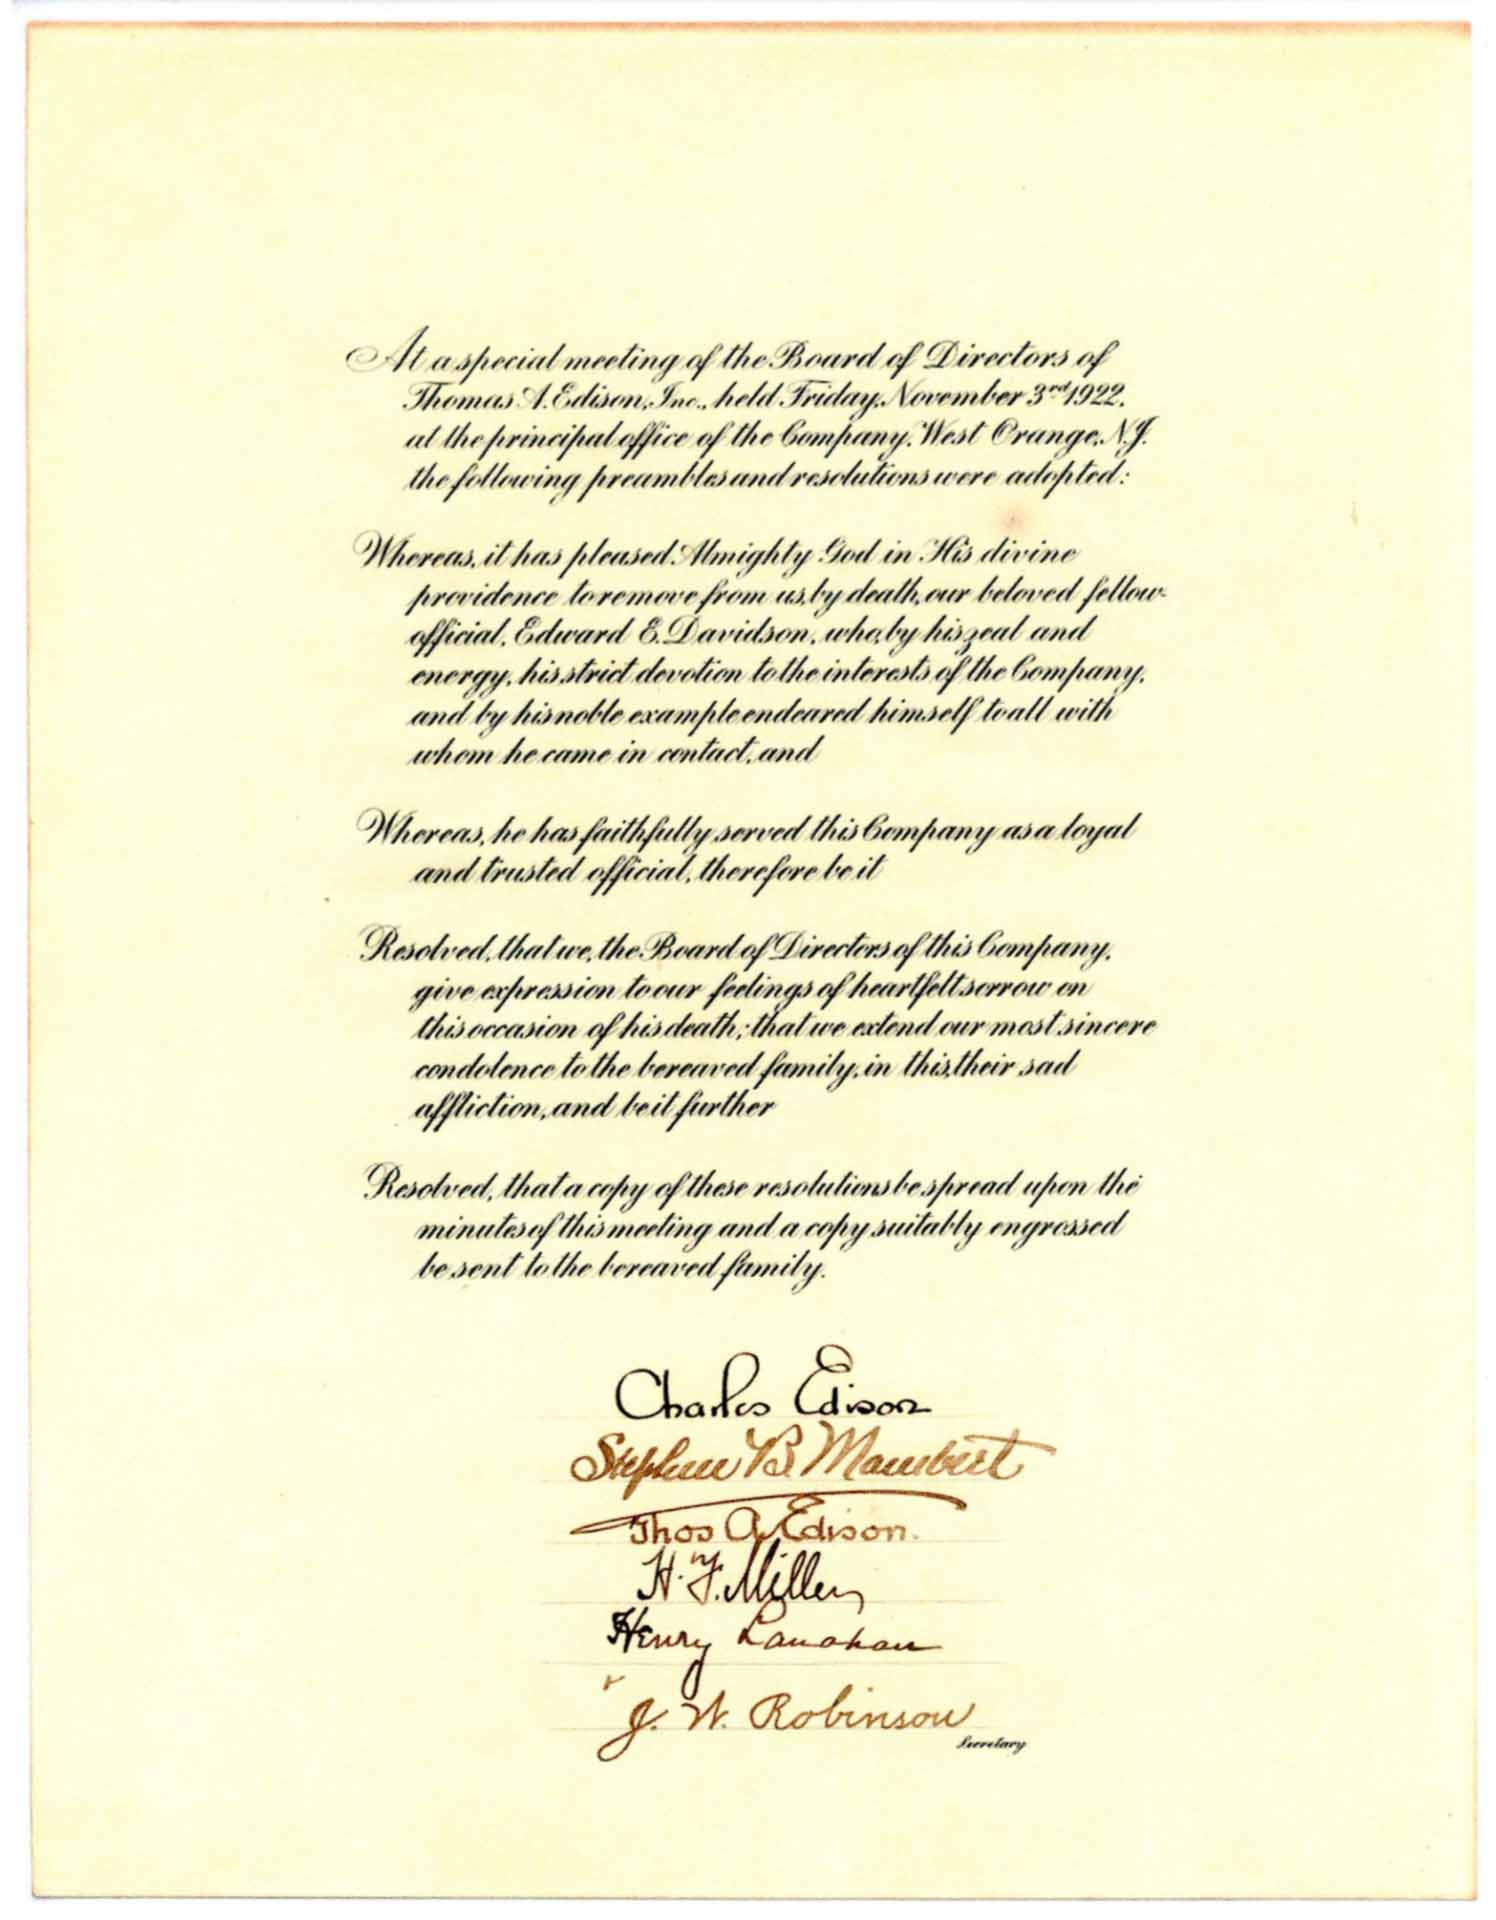 At a special meeting of the Board of Directors of
Thomas A. Edison, Inc., held Friday, November 3rd 1922,
at the principal office of the Company, West Orange, N.J.
the following preambles and resolutions were adopted:
Whereas, it has pleased Almighty God in His divine
providence to remove from us, by death, our beloved fellow-
official, Edward E. Davidson, who, by his zeal and
energy, his strict devotion to the interests of the Company,
and by his noble example endeared himself to all with
whom he came in contact, and
Whereas, he has faithfully served this Company as a loyal
and trusted official, therefore be it
Resolved, that we, the Board of Directors of this Company,
give expression to our feelings of heartfelt sorrow on
this occasion of his death; that we extend our most sincere
condolence to the bereaved family, in this, their sad
affliction, and be it further
Resolved, that a copy of these resolutions be spread upon the
minutes of this meeting and a copy suitably engrossed
be sent to the bereaved family.
Charles Edison
Stephen B. Mambert
Thos A Edison.
H. F. Miller
Henry Lanahan
J. W. Robinson
Secretary